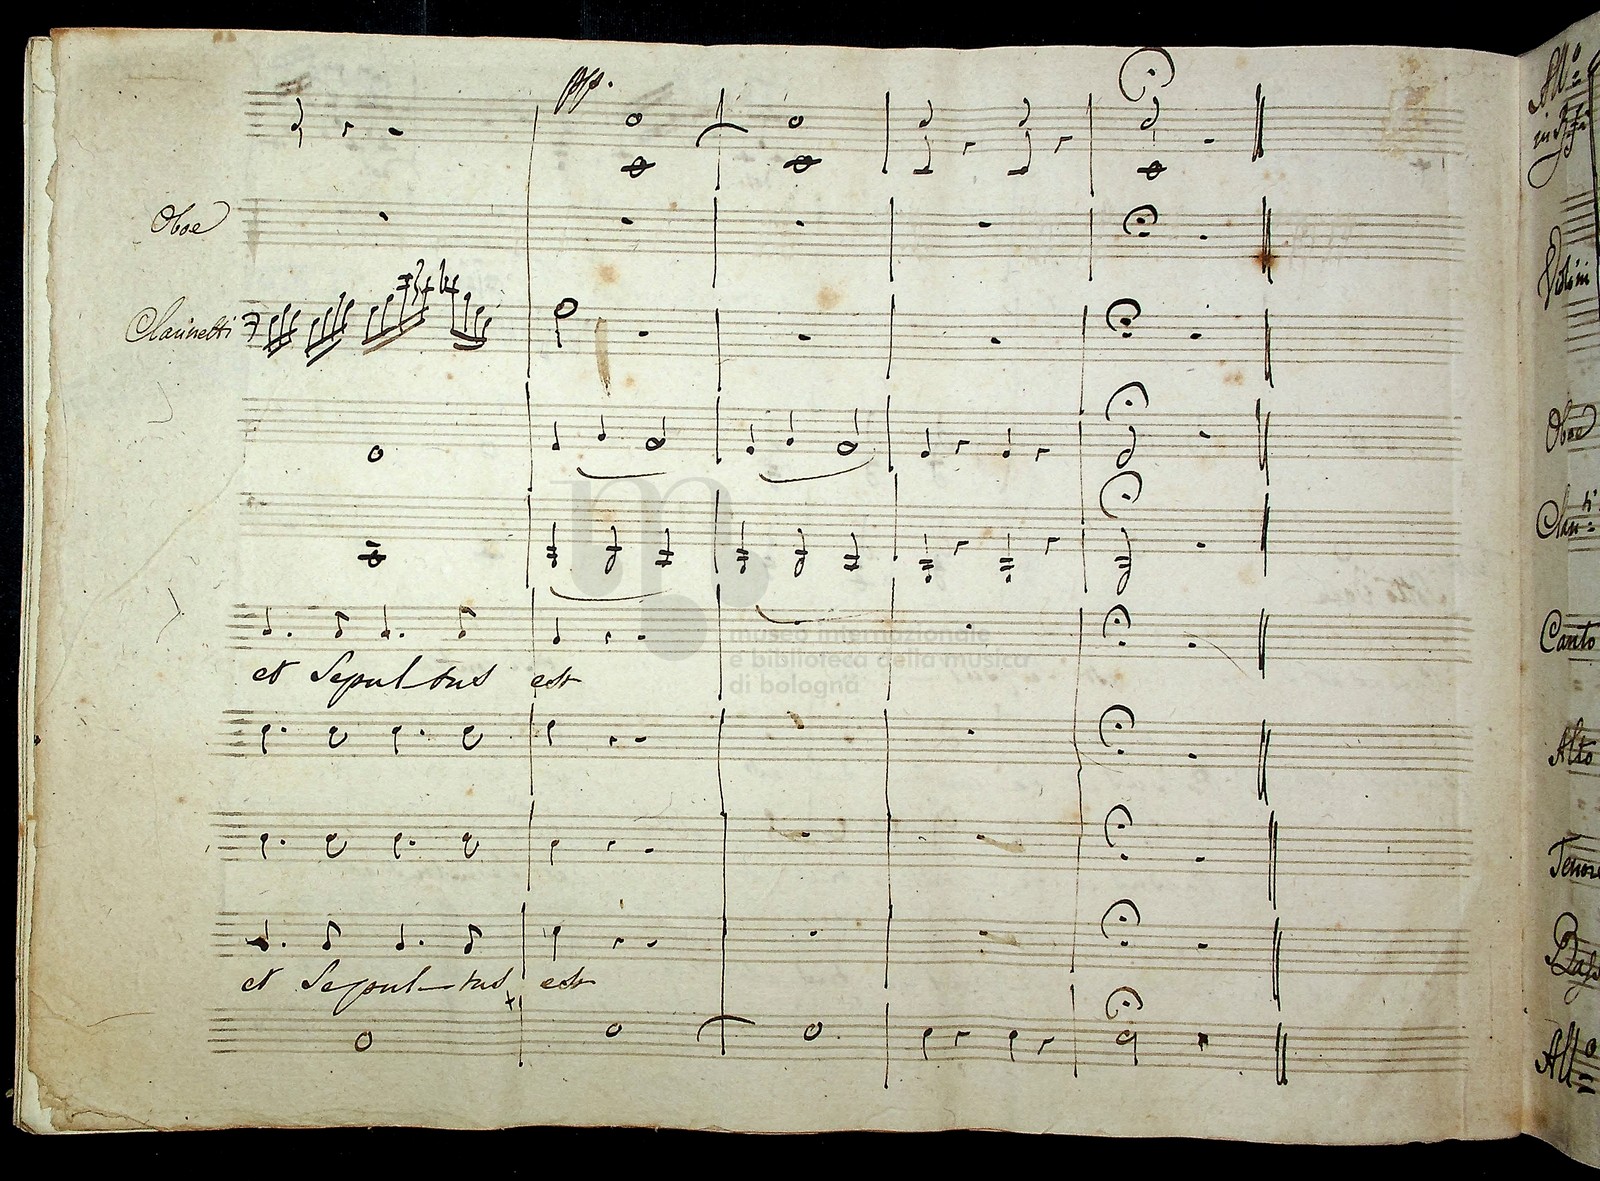 pp.
Oboe
Clarinetti
et Sepul-tus est
et Sepul-tus est
museo internazionale
e biblioteca della musica
di bologna
All.o
Violini
Oboe
Clar.ti
Canto
Alto
Tenore
All.o